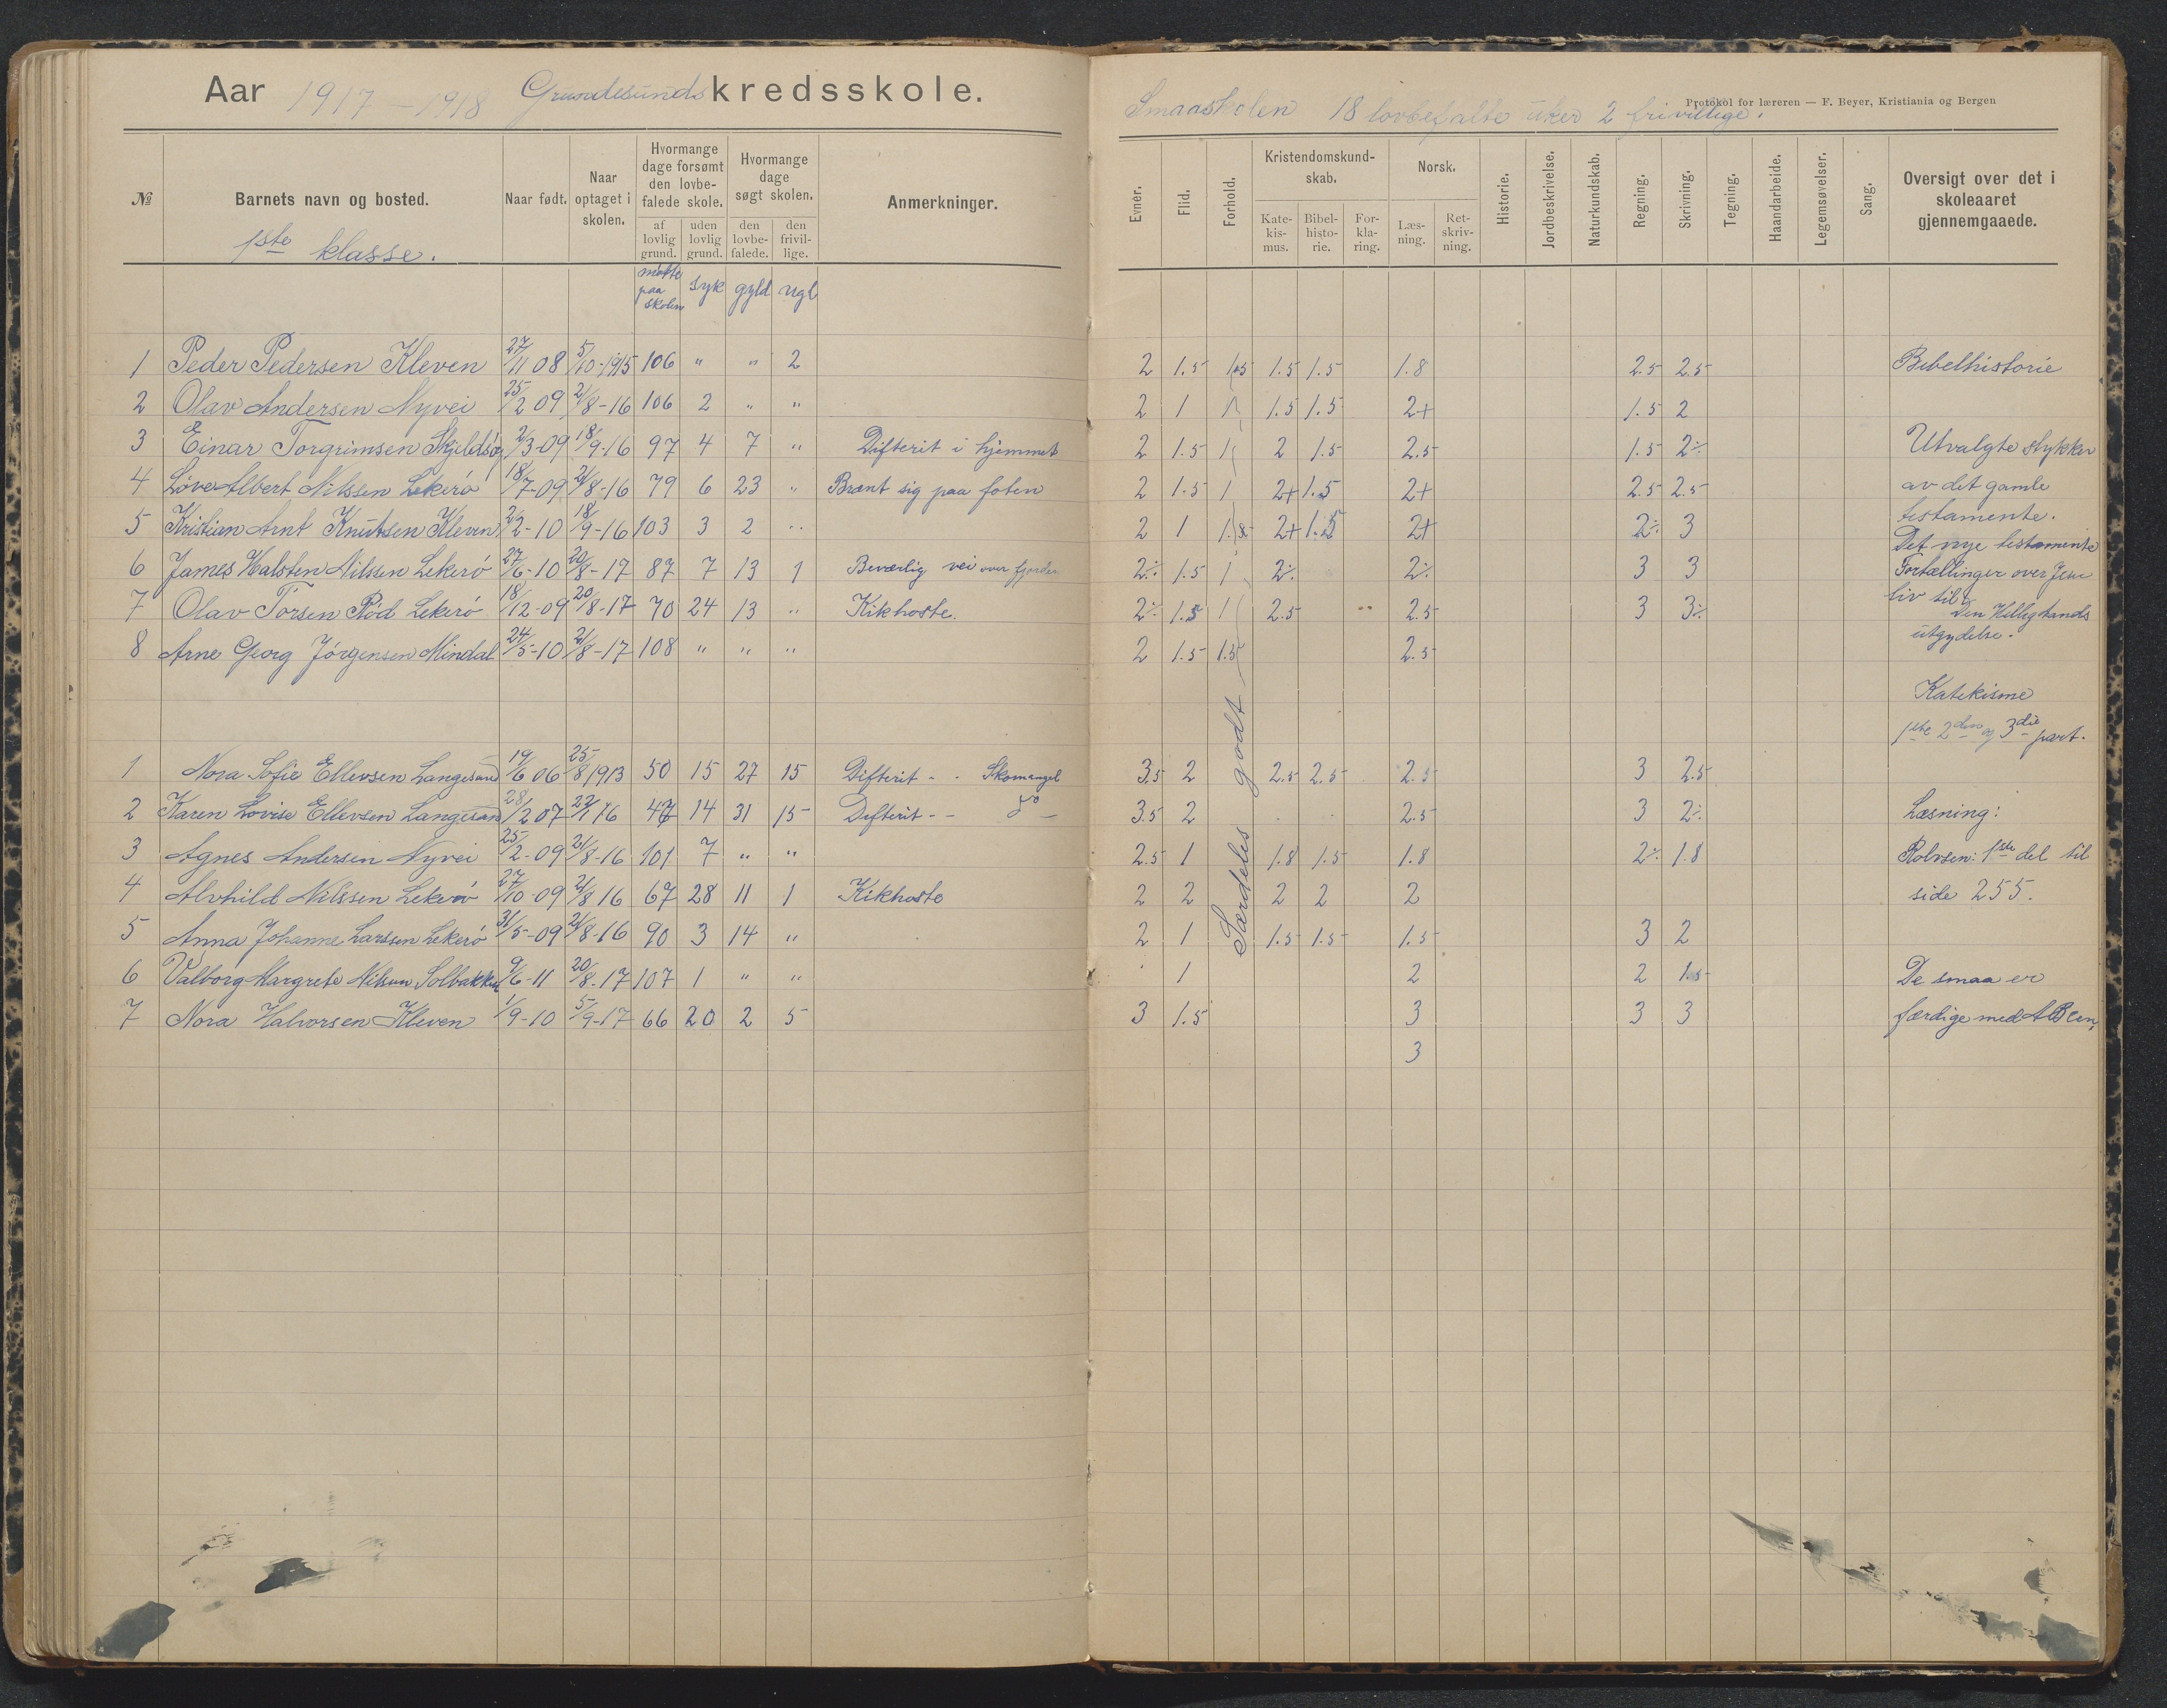 Aar 1917 – 1918 Grundesunds kredsskole.
№
Barnets navn og bosted.
1ste klasse.
Naar født.
Naar optaget i skolen.
Hvormange dage forsømt den lovbefalede skole.
af lovlig grund.
uden lovlig grund.
Hvormange dage søgt skolen.
den lovbe-falede.
den frivil-lige.
Anmerkninger.
møtte paa skolen syk gyld ugl
1 Peder Pedersen Kleven 27/11 08 5/10-1915 106 " " 2
2 Olav Andersen Nyvei 25/2 09 21/8-16 106 2 " "
3 Einar Torgrimsen 2/3-09 18/9-16 97 4 7 " Difterit i hjemmet
4 Albert Nilssen Lekerø 18/7-09 21/8-16 79 6 23 " Brænt sig paa foten
5 Kristian Arnt Knutsen Kleven 2/2-10 18/9-16 103 3 2 "
6 James Halsten Nilssen Lekerø 27/6-10 20/8-17 87 7 13 1 Besværlig vei over fjorden
7 Olav Torsen Rød Lekerø 18/12-09 20/8-17 70 24 13 " Kikhoste.
8 Arne Georg Jørgensen Mindal 24/5-10 21/8-17 108 " " "
1 Nora Sofie Ellevsen Langesund 19/6 06 25/8 1913 50 15 27 15 Difterit - - Skomangel
2 Karen Lovise Ellevsen Langesund 28/2 07 16 14 31 15 Difterit - - do -
3 Agnes Andersen Nyvei 25/2-09 21/8-16 101 7 " "
4 Alvhild Nilssen Lekerø 27/10-09 21/8 16 67 28 11 1 Kikhoste
5 Anna Johanne Larssen Lekerø 31/5-09 21/8-16 90 3 14 "
6 Valborg Margrete Nilsen Solbakken 9/6-11 20/8-17 107 1 " "
7 Nora Halvorsen Kleven 1/9-10 5/9-17 66 20 2 5
Smaaskolen 18 lovbefalte uker 2 frivillige.
Protokol for læreren — F. Beyer, Kristiania og Bergen
Evner.
Flid.
Forhold.
Kristendomskund-skab.
Kate-kis-mus.
Bibel-histo-rie.
For-kla-ring.
Norsk.
Læs-ning.
Ret-skriv-ning.
Historie.
Jordbeskrivelse.
Naturkundskab.
Regning.
Skrivning.
Tegning.
Haandarbeide.
Legemsøvelser.
Sang.
Oversigt over det i skoleaaret gjennemgaaede.
2 1.5 1.5 1.5 1.5 1.8 2.5 2.5 Bibelhistorie
2 1 1 1.5 1.5 2+ 1.5 2
2 1.5 1 2 1.5 2.5 1.5 2% Utvalgte stykker
2 1.5 1 2+ 1.5 2+ 2.5 2.5 av det gamle
2 1 2+ 1.5 2+ 2% 3 testamente.
Det nye testamente
2% 1.5 1 2% 2% 3 3 Fortællinger over Jesu
liv til
2% 1.5 1 2.5 " 2.5 3 3% Den Hellig Aands
2 1.5 1.5 2.5 utgydelse.
Særdeles godt
Katekisme
1ste 2den og 3die part.
3.5 2 2.5 2.5 2.5 3 2.5
3.5 2 2.5 3 2% Læsning:
2.5 1 1.8 1.5 1.8 2% 1.8 Rolvsen: 1ste del til
2 2 2 2 2 side 255.
2 1 1.5 1.5 1.5 3 2
1 2 2 1.5 De smaa er
3 1.5 3 3 3 færdige med ABCen,
3